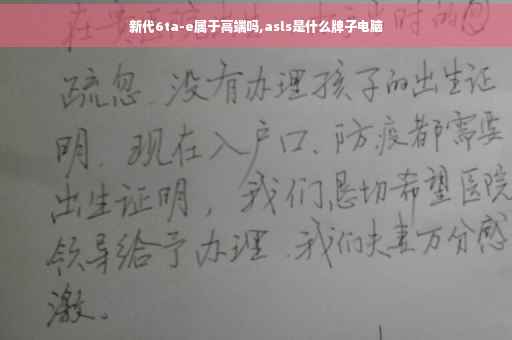 新代6ta-e属于高端吗,asls是什么牌子电脑
在贵医院 时的
疏忽.没有办理孩子的出生证
明.现在入户口、防疫都需要
出生证明，我们恳切希望医院
领导给予办理.我们夫妻万分感
激。